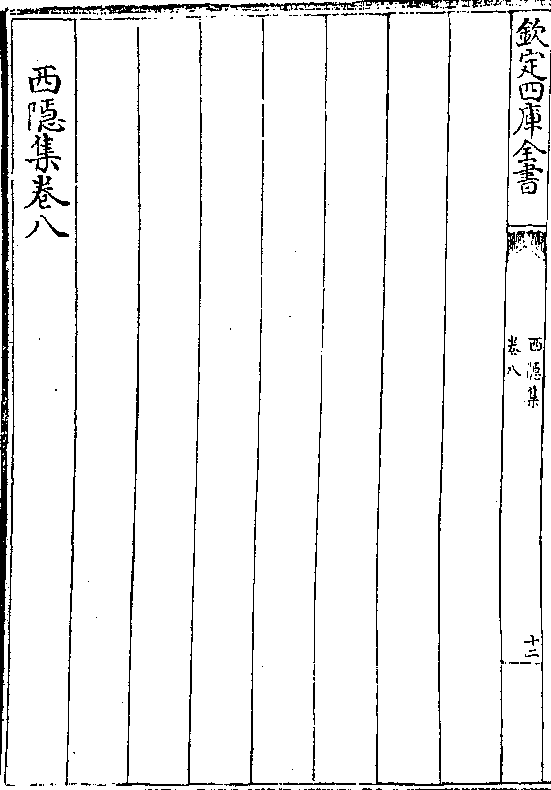 欽定四庫全書
西隱集
卷八
十二
西隱集卷八